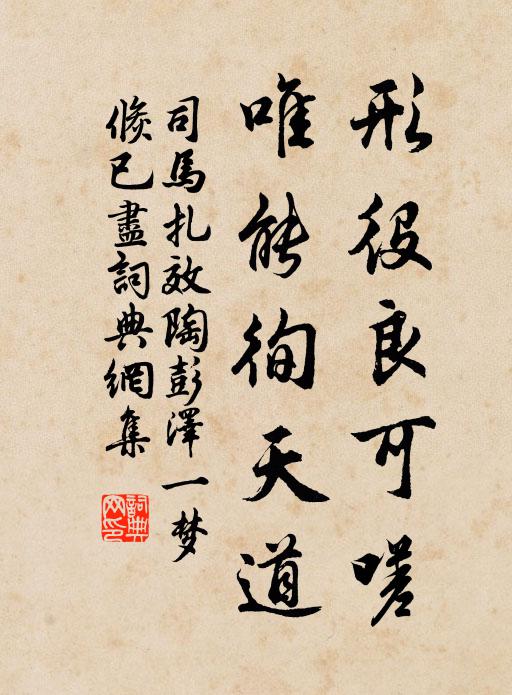 形役良可嗟
唯能徇天道
司馬扎效陶彭澤一梦
倏已盡詞典網集
詞典網印